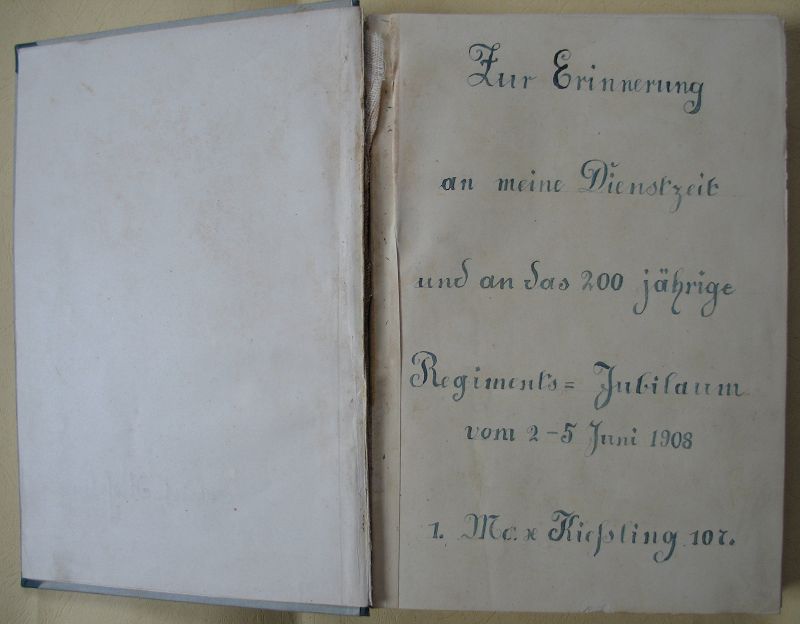 Zur Erinnerung
an meine Dienstzeit
und an das 200 jährige
Regiments= Jubilaum
vom 2-5 Juni 1908
1. Max Kießling 107.